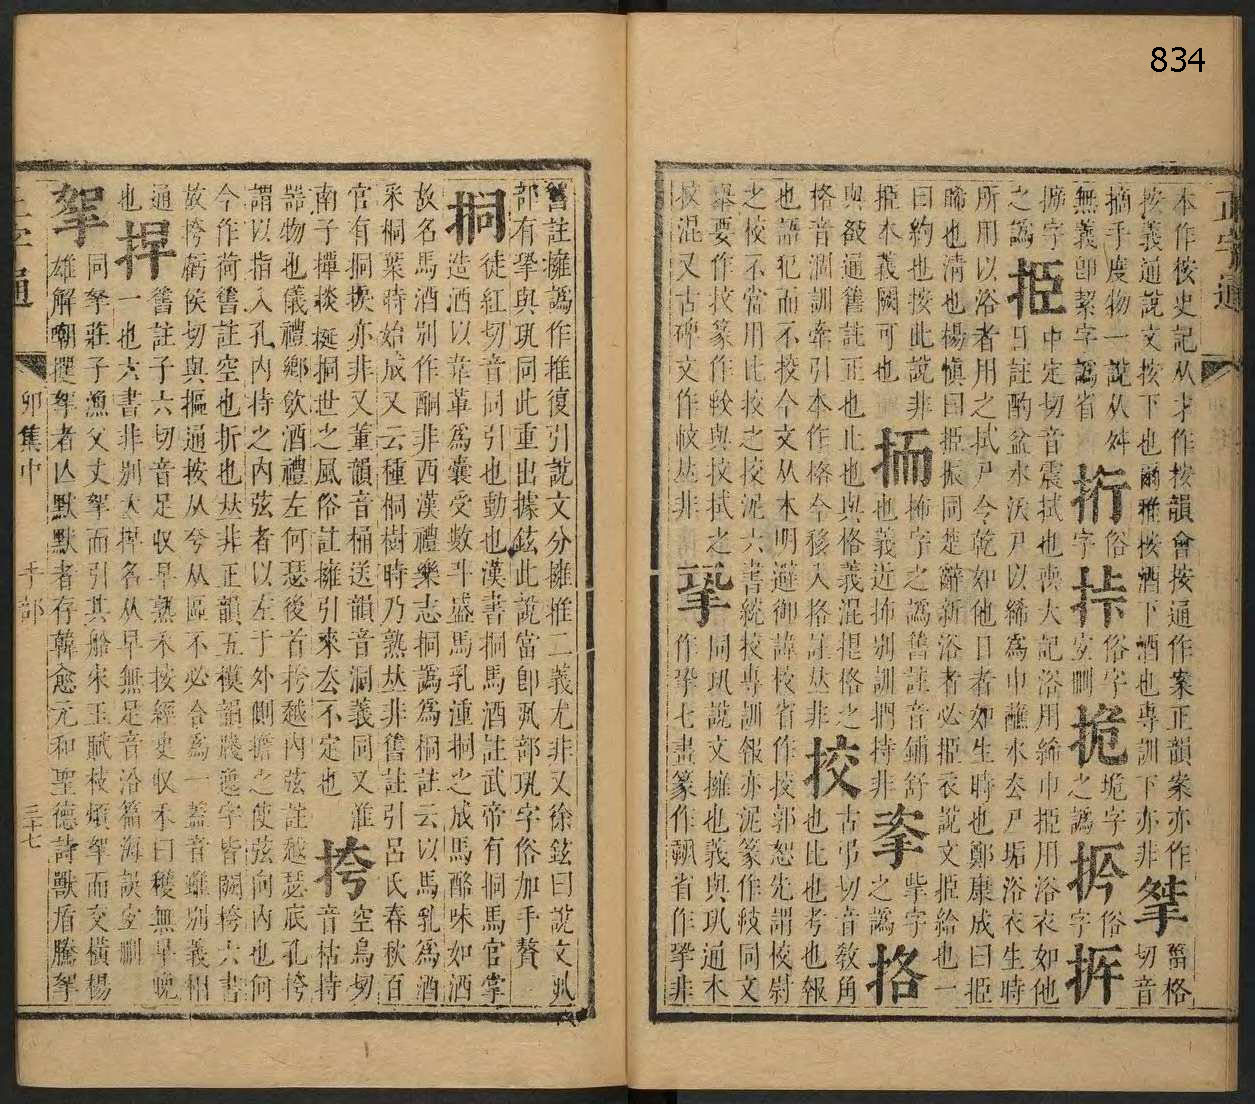 834
正字通
本作按史記从才作按韻會按通作案正韻案亦作
按義通說文按下也爾雅按酒下酒也專訓下亦非
搻
篇格
切音
摘手度物一說从舛
無義卽挈字譌省
挬
俗
字
挊
俗字
宜刪
桅
桅字
之譌
扲
俗
字
拤
擴字
之譌
挋
之譌
中定切音震拭也喪大記浴用絺巾挋用浴衣如他
日註酌盆水沃尸以絺爲巾蘸水去尸垢浴衣生時
所用以浴者用之拭尸令乾如他日者如生時也鄭康成曰挋
晞也淸也楊愼曰挋振同楚辭新浴者必挋衣說文挋給也一
曰約也按此說非
挋本義闕可也
抪字之譌舊註音鋪舒
也義近抪別訓捫持非
挛
挐字
之譌
格
與敋通舊註正也止也與格義混挹俗之
格音澗訓牽引本作格今移入挌註𠀤非
校
古弔切音敎角
也比也考也報
也語犯而不校今文从木明避御諱校省作挍郭恕先謂校尉
之校不當用比挍之挍泥六書統挍專訓報亦泥篆作㩰同文
舉要作挍篆作較與挍拭之
挍混又古碑文作㩰𠀤非
挐
同巩說文擁也義與巩通本
作挐七畫篆作巩省作挐非
舊註擁譌作推復引說文分擁推二義尤非又徐鉉曰說文丮
部有挐與巩同此重出據鉉此說當卽丮部巩字俗加手贅
挏
徒紅切音同引也動也漢書挏馬酒註武帝有挏馬官掌
造酒以韋革爲囊受數斗盛馬乳湩挏之成馬酪味如酒
故名馬酒別作酮非西漢禮樂志挏譌爲桐註云以馬乳爲酒
釆桐葉時始成又云種桐樹時乃熟𠀤非舊註引呂氏春秋百
官有挏挨亦非又董韻音桶送韻音洞義同又淮
南子撣掞挻挏世之風俗註擁引來去不定也
挎
空烏切
音枯持
器物也儀禮鄉飮酒禮左何瑟後首挎越內弦註越瑟底孔挎
謂以指入孔內持之內弦者以左于外側擔之使弦向內也何
今作荷舊註空也折也𠀤非正韻五模韻牋逸字皆闕挎六書
故挎虧侯切與摳通按从夸从區不必合爲一蓋音雖別義相
通舊註子六切音足收早熟禾按經史收禾曰穫無早晚
捍
一也六書非別大捍名从早無足音㳂篇海誤宜刪
挐
同拏莊子漁父丈挐而引其船宋玉賦枝煩挐而交橫楊
雄解嘲攫挐者亾默默者存韓愈元和聖德詩獸盾騰拏
正字通
卯集中
手部
三十七